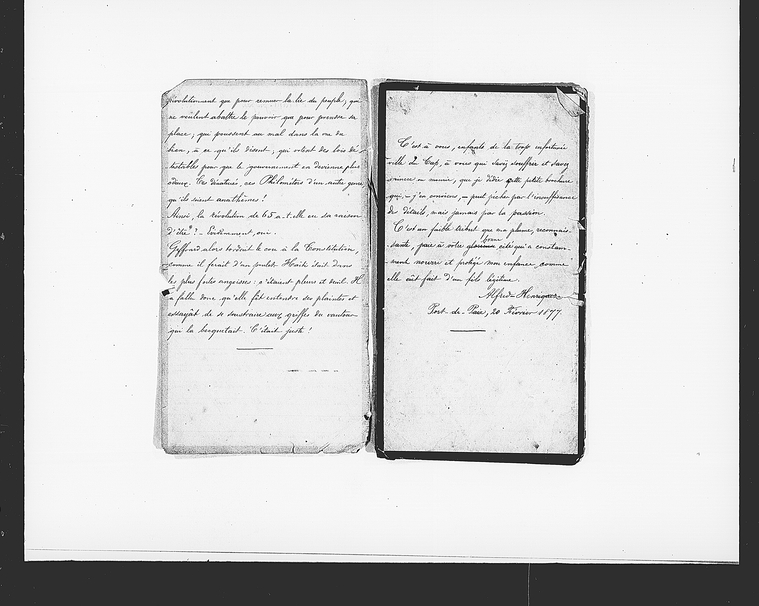 révolutionnent que pour remuer la lie du peuple, qui
ne veulent abattre le pouvoir que pour prendre sa
place; qui poussent au mal dans la vue du
bien, à ce qu'ils disent; qui votent des lois dé
testables pour que le gouvernement en devienne plus
odieux. Ces dénaturés, ces Philométors d'un autre genre
qu'ils soient anathèmes!
Ainsi, la révolution de 65 a-t-elle eu sa raison
d'être? — Évidemment, oui.
Geffrard alors tordait le cou à la Constitution,
comme il ferait d'un poulet. Haïti était dans
les plus folles angoisses: c'étaient pleurs et deuil. Il
a fallu donc qu'elle fît entendre ses plaintes et
essayât de se soustraire aux griffes du vautour
qui la becquetait. C'était juste!
C'est à vous, enfants de la trop infortunée
ville du Cap, à vous qui savez souffrir et savez
vaincre ou mourir, que je dédie cette petite brochure
qui, — j'en conviens, — peut pécher par l'insuffisance
de détails, mais jamais par la passion.
C'est un faible tribut que ma plume, reconnais-
sante, paie à votre bonne cité qui a constam-
ment nourri et protégé mon enfance, comme
elle eût fait d'un fils légitime.
Alfred-Henriquez
Port-de-Paix, 20 Février 1877.